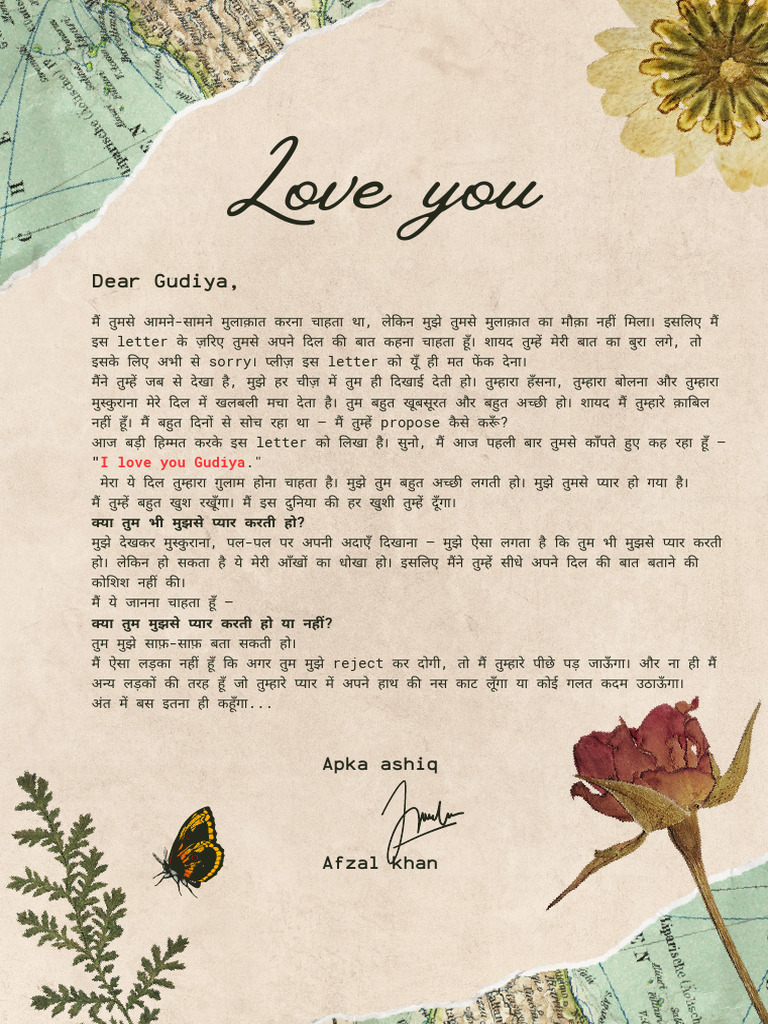 Love you
Dear Gudiya,
मैं तुमसे आमने-सामने मुलाक़ात करना चाहता था, लेकिन मुझे तुमसे मुलाक़ात का मौक़ा नहीं मिला। इसलिए मैं
इस letter के ज़रिए तुमसे अपने दिल की बात कहना चाहता हूँ। शायद तुम्हें मेरी बात का बुरा लगे, तो
इसके लिए अभी से sorry। प्लीज़ इस letter को यूँ ही मत फेंक देना।
मैंने तुम्हें जब से देखा है, मुझे हर चीज़ में तुम ही दिखाई देती हो। तुम्हारा हँसना, तुम्हारा बोलना और तुम्हारा
मुस्कुराना मेरे दिल में खलबली मचा देता है। तुम बहुत खूबसूरत और बहुत अच्छी हो। शायद मैं तुम्हारे क़ाबिल
नहीं हूँ। मैं बहुत दिनों से सोच रहा था – मैं तुम्हें propose कैसे करूँ?
आज बड़ी हिम्मत करके इस letter को लिखा है। सुनो, मैं आज पहली बार तुमसे काँपते हुए कह रहा हूँ –
"I love you Gudiya."
मेरा ये दिल तुम्हारा ग़ुलाम होना चाहता है। मुझे तुम बहुत अच्छी लगती हो। मुझे तुमसे प्यार हो गया है।
मैं तुम्हें बहुत खुश रखूँगा। मैं इस दुनिया की हर खुशी तुम्हें दूँगा।
क्या तुम भी मुझसे प्यार करती हो?
मुझे देखकर मुस्कुराना, पल-पल पर अपनी अदाएँ दिखाना – मुझे ऐसा लगता है कि तुम भी मुझसे प्यार करती
हो। लेकिन हो सकता है ये मेरी आँखों का धोखा हो। इसलिए मैंने तुम्हें सीधे अपने दिल की बात बताने की
कोशिश नहीं की।
मैं ये जानना चाहता हूँ –
क्या तुम मुझसे प्यार करती हो या नहीं?
तुम मुझे साफ़-साफ़ बता सकती हो।
मैं ऐसा लड़का नहीं हूँ कि अगर तुम मुझे reject कर दोगी, तो मैं तुम्हारे पीछे पड़ जाऊँगा। और ना ही मैं
अन्य लड़कों की तरह हूँ जो तुम्हारे प्यार में अपने हाथ की नस काट लूँगा या कोई गलत कदम उठाऊँगा।
अंत में बस इतना ही कहूँगा...
Apka ashiq
Afzal khan